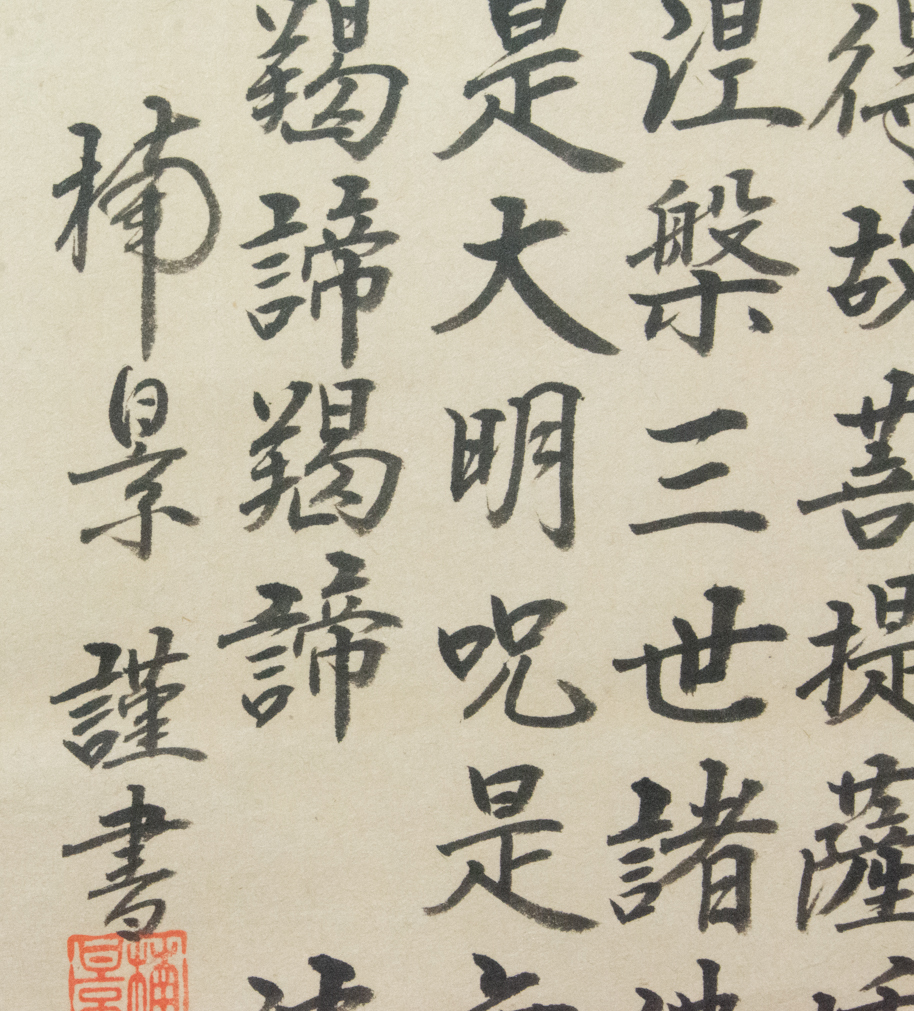 得故菩提薩
涅槃三世諸
是大明呪是
羯諦羯諦
楠景 謹書
楠景